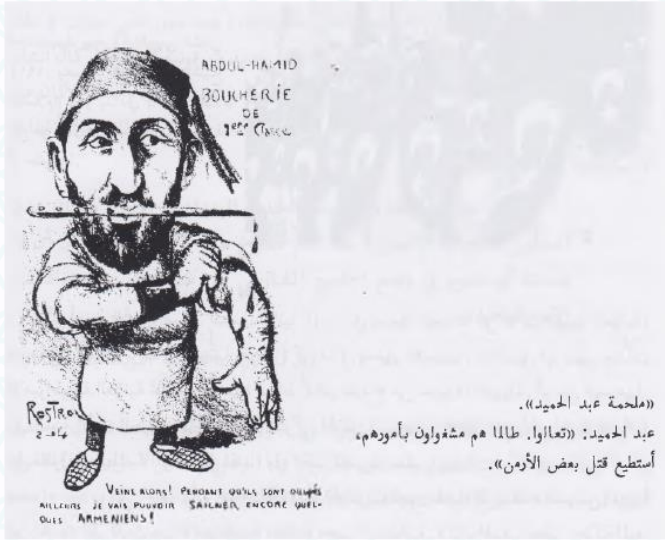 ABDUL-HAMID
BOUCHERIE
DE
1ere Classe
ROSTRO
VEINE ALORS! PENDANT QU'ILS SONT OCCUPÉS
AILLEURS JE VAIS POUVOIR SAIGNER ENCORE QUEL-
QUES ARMENIENS!
«ملحمة عبد الحميد».
عبد الحميد: «تعالوا. طالما هم مشغولون بأمورهم،
أستطيع قتل بعض الأرمن».